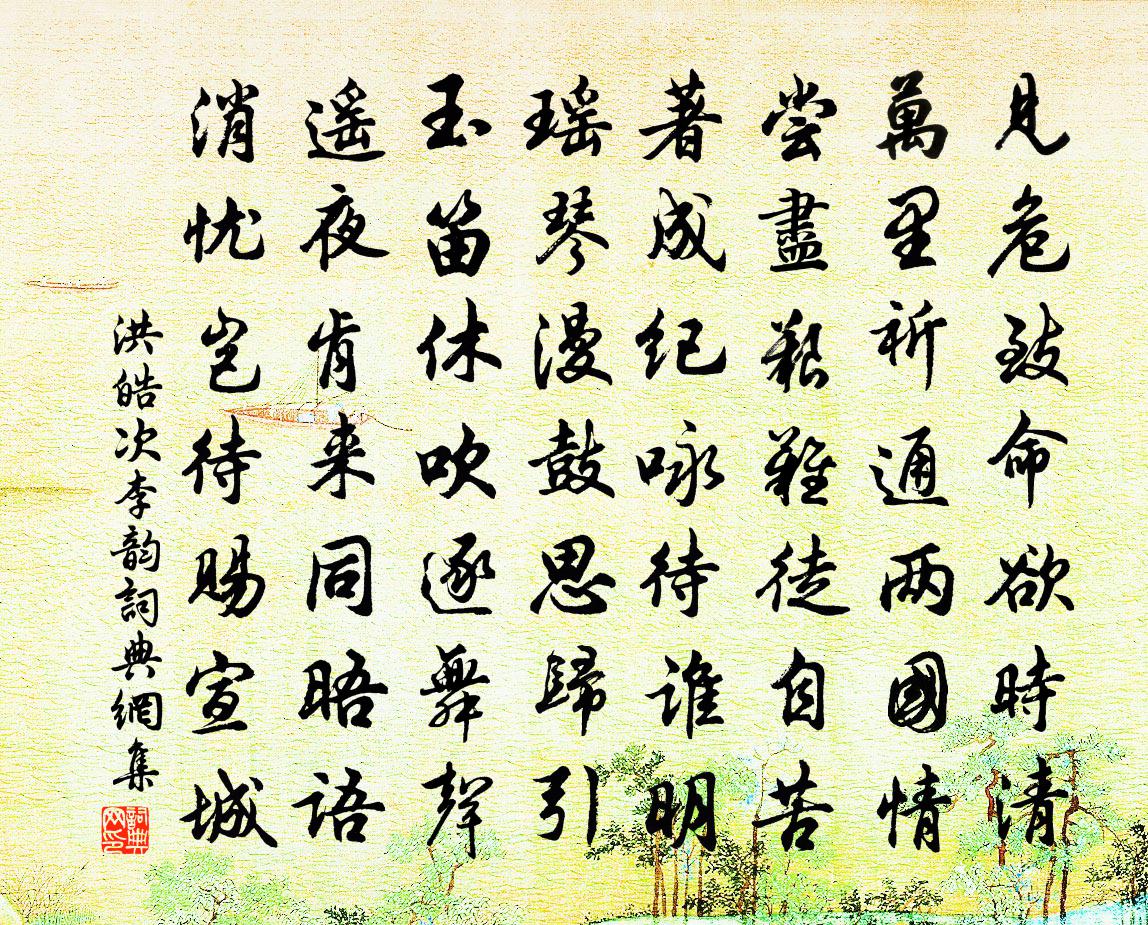 見危致命欲時清
萬里祈通两國情
嘗盡艱難徒自苦
著成紀咏待誰明
瑶琴漫鼓思歸引
玉笛休吹逐舞聲
遥夜肯来同晤語
消忧岂待賜宣城
洪皓次李韵詞典網集
詞典网印